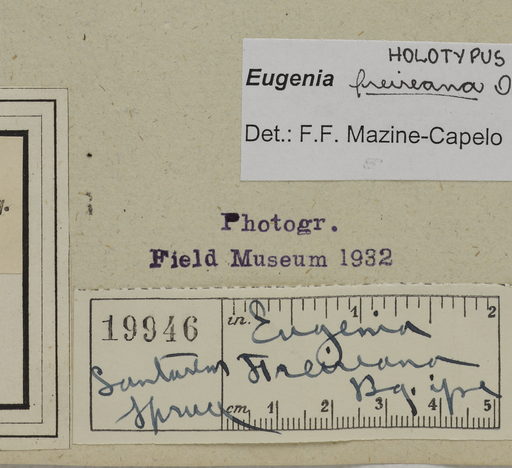 HOLOTYPUS
Eugenia freireana O
Det.: F.F. Mazine-Capelo
Photogr.
Field Museum 1932
19946
in. 1 2
Eugenia
Santarem Freireana
Bg.
Spruce
cm 1 2 3 4 5